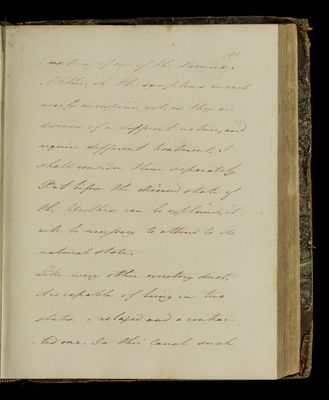 of one of the
Although the symptoms in each
nearly correspond, yet as they are
diseases of a different nature, and
require different treatment, I
shall consider them separately.
But before the diseased state of
the Urethra can be explained, it
will be necessary to attend to its
natural state.
Like every other excretory duct,
it is capable of being in two
states, a relaxed and a contrac-
ted one. In this Canal such